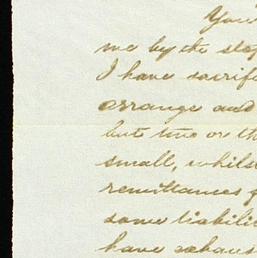 You
me by the stop
I have sacrif
arrange and
but two or th
small, whils
remittances
some liabili
have exhaus